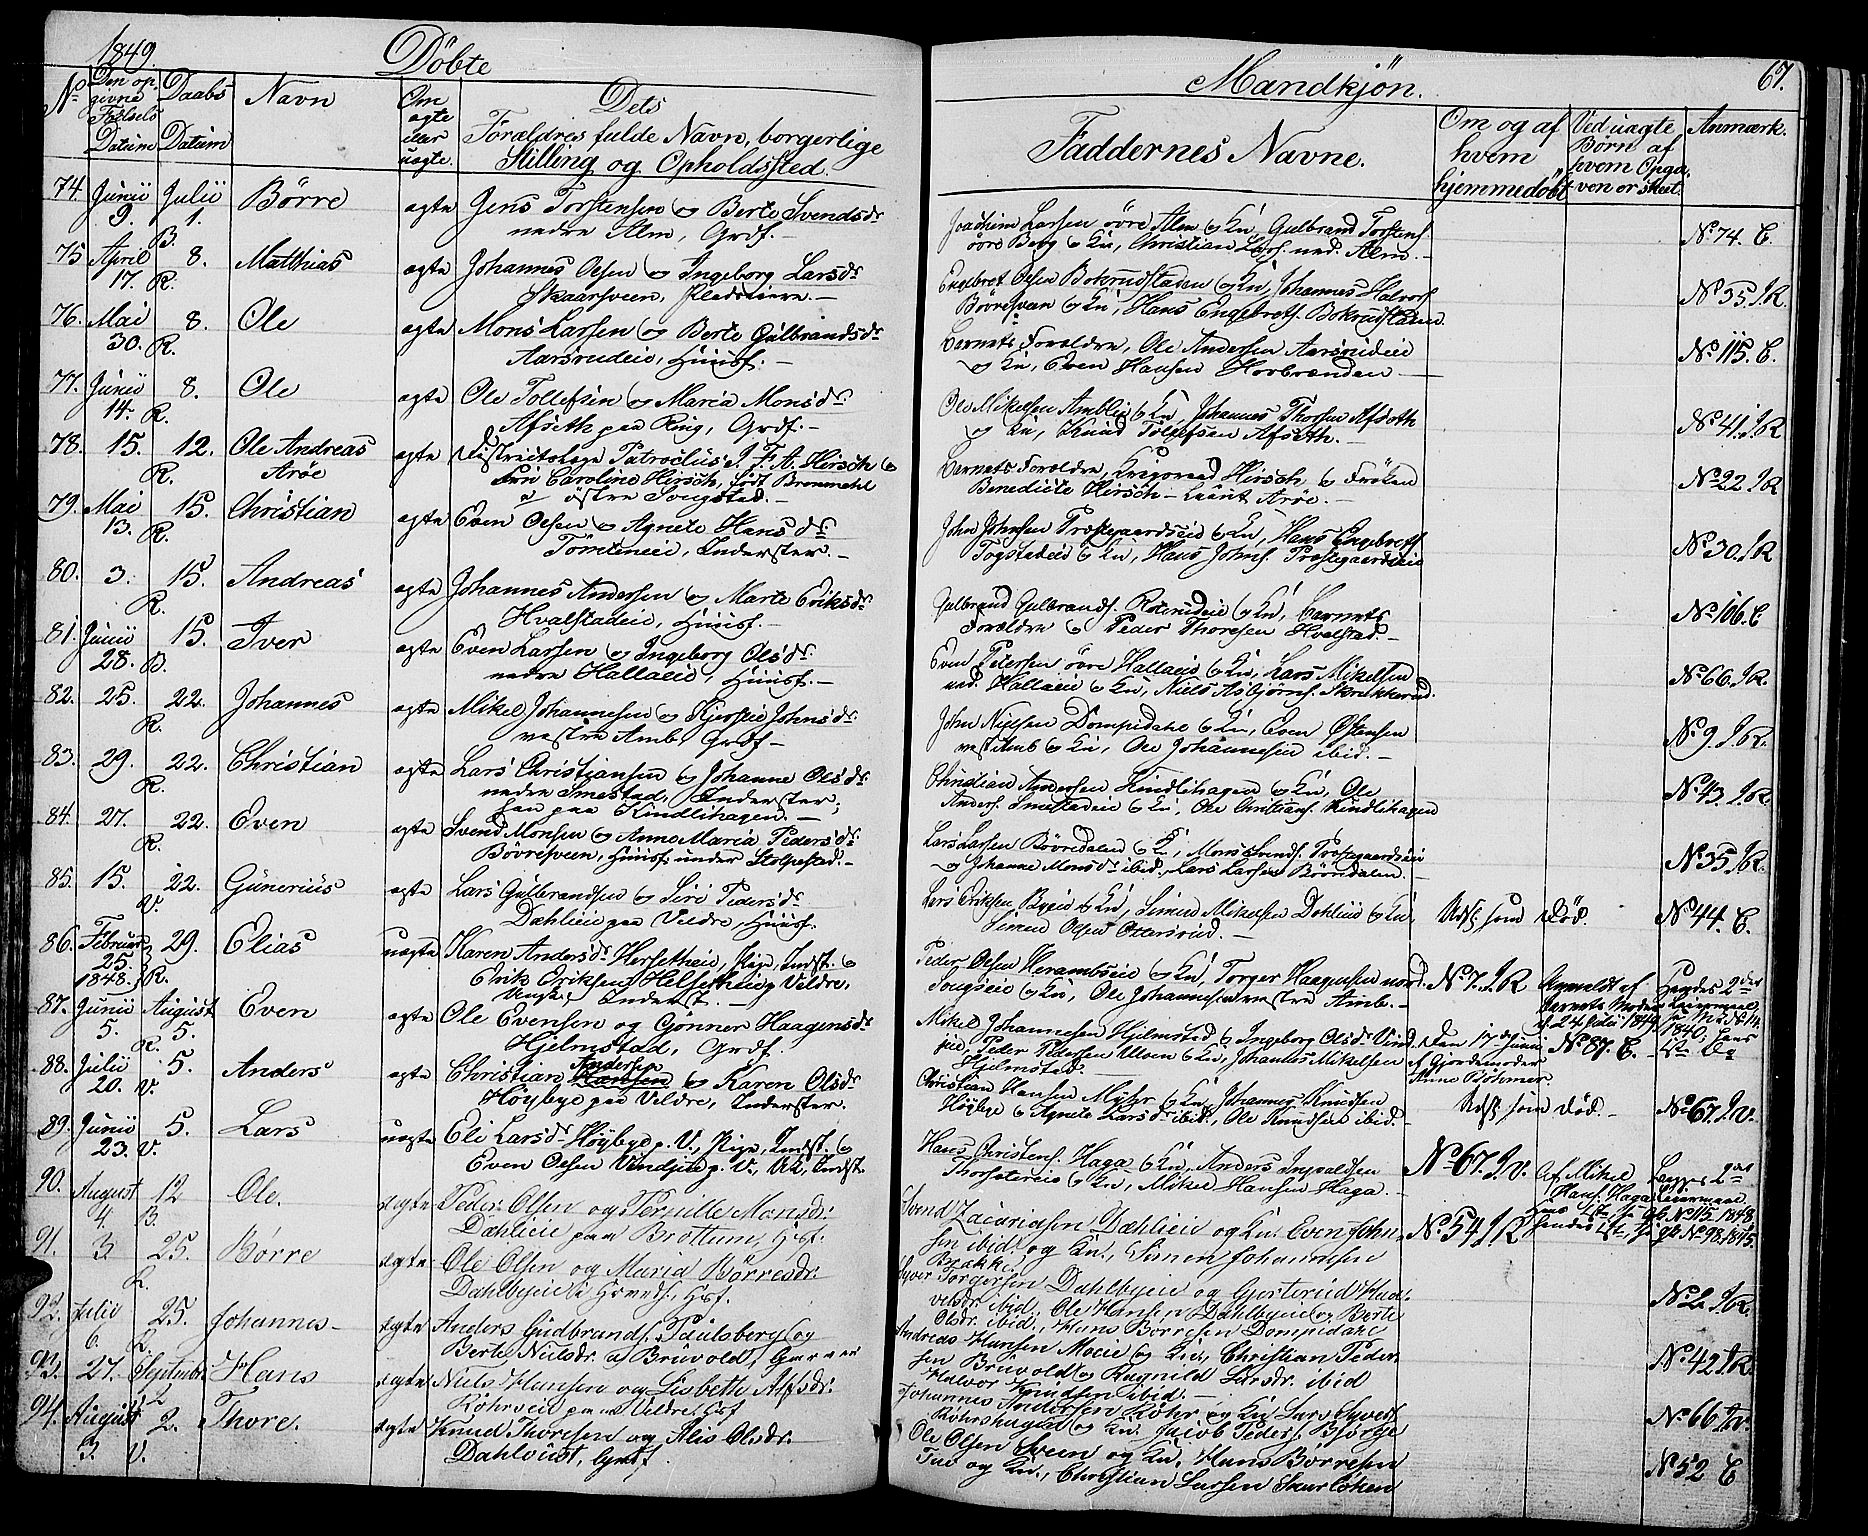 1849.
Döbte
Mandkjön.
67.
No Den opgivne Fødsels Datum
Daabs Datum
Navn
Om ægte eller uægte.
Dets Forældres fulde Navn, borgerlige Stilling og Opholdssted.
Faddernes Navne.
Om og af hvem hjemmedöbt
Ved uægte Børn af hvem Opgaven er skeet.
Anmærk.
74. Junii 9. Julii 1. B. Börre ægte Jens Torstensen og Berte Svendsdr
nedre Alm, Grdf.
Joachim Larsen övre Alm og Kn, Gulbrand Torstens.
övre Berg og Kn, Christian Lars. ned. Alm.
No 74. C.
75 April 17. 8. R. Matthias ægte Johannes Olsen og Ingeborg Larsdr
Skaarsveen,
Engebret Olsen Bokrudstaden og Kn, Johannes Halvors.
Börresveen og Kn, Hans Engebrets. Bokrudstaden
No 35. IR.
76. Mai 30. 8. R. Ole ægte Mons Larsen og Berte Gulbrandsdr
Aarsrudeie, Huusf.
Barnets Forældre, Ole Andersen Aarsrudeie
og Kn, Even Hansen Horbrænden
No 115. C.
77. Junii 14. 8. R. Ole ægte Ole Tollefsen og Maria Monsdr
Afseth paa Ring, Grdf.
Ole Mikelsen Amblie og Kn, Johannes Thorsen Afseth
og Kn, Knud Tollefsen Afseth.
No 41. IR
78. 15. 12. R. Ole Andreas Aröe ægte Districtslæge Patroclus J. F. A. Hirsch og
Fru Caroline Hirsch, födt Brommehl
östre Sougstad.
Barnets Forældre, Krigsraad Hirsch og Fröken
Benedicte Hirsch - Leut. Aröe.
No 22. IR
79. Mai 13. 15. R. Christian ægte Even Olsen og Agnete Hansdr.
Tömteneie, Inderster.
John Johnsen Præstegaardseie og Kn, Hans Engebrets.
Togstadeie og Kn, Hans Johns. Præstegaardseie
No 30. IR
80. 3. 15. R. Andreas ægte Johannes Andersen og Marte Eriksdr
Hvalstadeie, Huusf.
Gulbrand Gulbrands. Roterudeie og Kn, Barnets
Forældre og Peder Thoresen Hvalstad
No 106. C
81. Junii 28. 15. B. Iver ægte Even Larsen og Ingeborg Olsdr
nedre Hallaeie, Huusf.
Even Petersen övre Hallaeie og Kn, Lars Mikelsen
ned. Hallaeie og Kn, Niels Asbjörns. Skrukkerud.
No 66. IR.
82. 25. 22. R. Johannes ægte Mikel Johannesen og Kjerstie Johnsdr
vestre Amb. Grdf
John Nielsen Dompidahl og Kn, Even Östensen
vest. Amb og Kn, Ole Johannesen ibid.
No 9. IR.
83. 29. 22. R. Christian ægte Lars Christiansen og Johanne Olsdr
nedre Smestad, Inderster;
han paa Kindlihagen.
Christian Andersen Kindlihagen og Kn, Ole
Anders. Smestadeie og Kn, Ole Christians. Kindlihagen
No 43. IR
84. 27. 22. R. Even ægte Svend Monsen og Anne Maria Pedersdr
Börresveen, Huusf. under Stolpestad.
Lars Larsen Börredalen og K, Mons Svends. Præstegaardseie
og Johanne Monsdr ibid., Lars Larsen Börredalen.
No 35. IR
85. 15. 22. V. Gunerius ægte Lars Gulbrandsen og Siri Pedersdr
Dahlieie paa Veldre, Huusf.
Lars Eriksen Byeie og Kn, Simen Mikelsen Dahleie og Kn,
Simen Olsen Ottersrud.
Udst som död.
No 44. C.
86. Februar 25. 1848. 29. R. Elias uægte Karen Andersdr Hersetheie, Pige, Indst. og
Erik Eriksen Helsetheie Veldre,
Ungk. Inderst.
Peder Olsen Herambseie og Kn, Torger Haagensen nord.
Sougseie og Kn, Ole Johannesen vestre Amb.
No 7. IR
Anmeldt af Barnets Moder d. 24 Julii 1849
Hendes 2det Leiermaal
87. Junii 5. August 5. R. Even ægte Ole Evensen og Gönner Haagensdr
Hjelmstad, Grdf.
Mikel Johannesen Hjelmstad og Ingeborg Olsdr
Peder Pedersen Ulven og Kn, Johannes Mikelsen
Hjelmstad.
Den 17de Junii af Gjordemoder Anne Böhmer.
No 87. C.
88. Julii 20. 5. V. Anders ægte Christian Hansen Andersen og Karen Olsdr
Höybye paa Veldre, Inderster.
Christian Hansen Myhr og Kn, Johannes Knudsen
Höybye og Agnete Larsdr ibid., Ole Knudsen ibid.
Udst som död.
No 67. IV.
89. Junii 23. 5. V. Lars uægte Eli Larsdr Höybye p. V., Pige, Indst. og
Even Olsen Vindjue p. V., Uk, Indst.
Hans Christens. Haga og Kn, Anders Ingvaldsen
Thorstereie og Kn, Mikel Hansen Haga.
No 67. IV.
Af Mikel Hans. Haga
Begges 2det Leiermaal
90. August 4. 12 B. Ole. ægte Peder Olsen og Pernille Monsdr.
Dahlieie paa Brøttum, Hsf.
Svend Zacariasen Dæhlieie og Kn. Even Johnsen
ibid. og Kn., Simen Johannesen
Brække.
No 54. IR
91. 3 25. R. Börre ægte Ole Olsen og Maria Börresdr.
Dahlbyeie Hsf.
Syver Torgersen Dahlbyeie og Gjerterud
ibid, Ole Hansen Dahlbyeie og Berte
Olsdr. ibid., Hans Börresen Dompidahl
No 2. IR.
92. Julii 6. 25. R. Johannes ægte Anders Gudbrands. Paulsberg og
Berte Nielsdr. Bruvold,
Andreas Hansen Moeie og Kn., Christian Pedersen
Bruvold og Ragnild Larsdr. ibid
Halvor Knudsen ibid.
No 42. IR
93. 27. September 2 Hans ægte Niels Hansen og Lisbeth Alfsdr.
Röhrseie paa Veldre, Hsf
Johannes Andersen Röhr og Kn. Lars Syvers.
Röhrshagen og Kn. Jacob Peders. Bjørge
No 66 IV.
94. August 3. 2. V. Thore. ægte Knud Thoresen og Alis Olsdr.
Dahlqvist, Gmf.
Ole Olsen Sveen og Kn., Hans Börresen
Tue og Kn., Christian Larsen Skurlöken
No 52 C